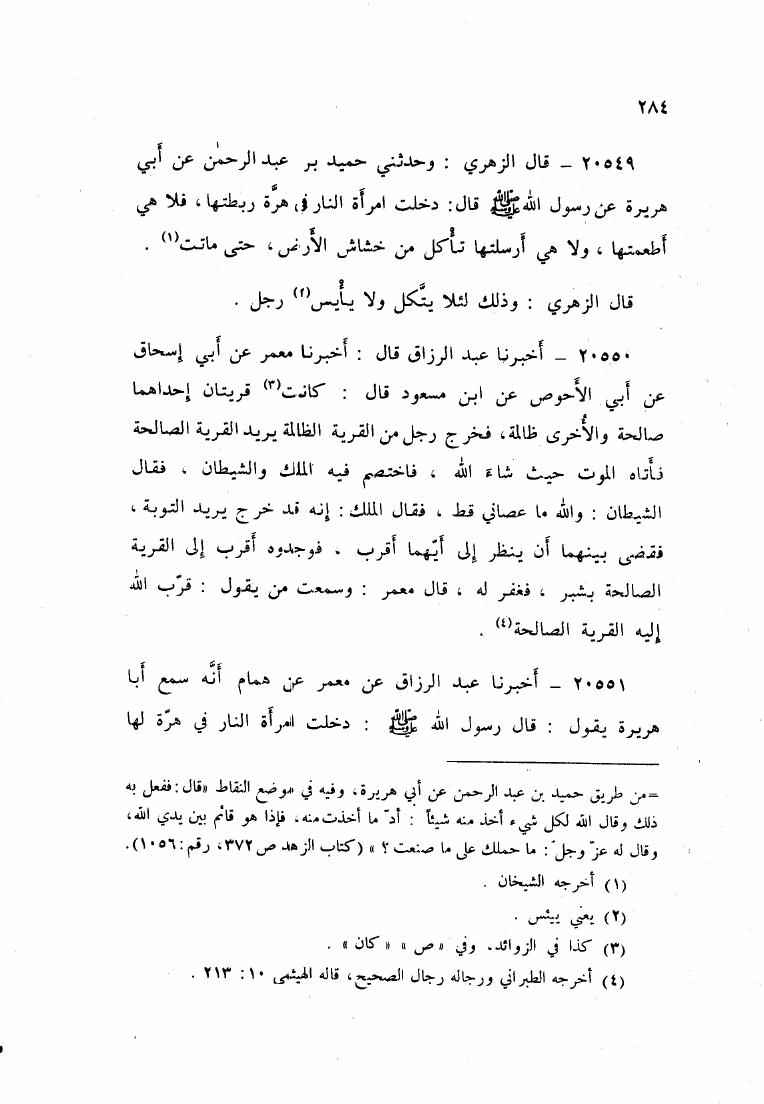 ٢٨٤
٢٠٥٤٩ – قال الزهري : وحدثني حميد بر عبد الرحمٰن عن أَبي
هريرة عن رسول الله ﷺ قال: دخلت امرأة النار في هرَّة ربطتها ، فلا هي
أطعمتها ، ولا هي أَرسلتها تأْكل من خشاش الأَرض ، حتى ماتت(١) .
قال الزهري : وذلك لئلا يتَّكل ولا يأْيس(٢) رجل .
٢٠٥٥٠ – أَخبرنا عبد الرزاق قال : أَخبرنا معمر عن أَبي إِسحاق
عن أَبي الأَحوص عن ابن مسعود قال : كانت(٣) قريتان إِحداهما
صالحة والأُخرى ظالمة ، فخرج رجل من القرية الظالمة يريد القرية الصالحة
فأَتاه الموت حيث شاءَ الله ، فاختصم فيه الملك والشيطان ، فقال
الشيطان : والله ما عصاني قط ، فقال الملك : إِنه قد خرج يريد التوبة ،
فقضى بينهما أَن ينظر إِلى أَيّهما أَقرب ، فوجدوه أَقرب إِلى القرية
الصالحة بشبر ، فغفر له ، قال معمر : وسمعت من يقول : قرّب الله
إِليه القرية الصالحة(٤) .
٢٠٥٥١ – أَخبرنا عبد الرزاق عن معمر عن همام أَنَّه سمع أَبا
هريرة يقول : قال رسول الله ﷺ : دخلت امرأَة النار في هرّة لها
=من طريق حميد بن عبد الرحمن عن أبي هريرة، وفيه في موضع النقاط «قال: ففعل به
ذلك وقال الله لكل شيء أخذ منه شيئاً : أدّ ما أخذت منه، فإذا هو قائم بين يدي الله،
وقال له عزّ وجلّ: ما حملك على ما صنعت ؟ » (كتاب الزهد ص ٣٧٢، رقم: ١٠٥٦).
(١) أخرجه الشيخان .
(٢) يعني ييئس .
(٣) كذا في الزوائد. وفي «ص» «كان» .
(٤) أخرجه الطبراني ورجاله رجال الصحيح، قاله الهيثمي ١٠: ٢١٣ .